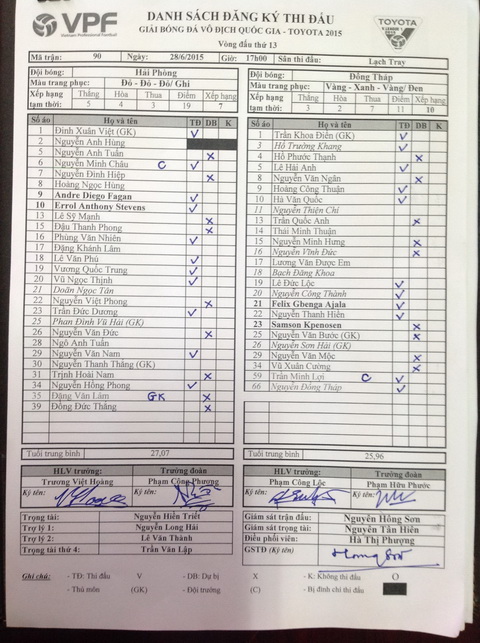 VPF
Vietnam Professional Football
DANH SÁCH ĐĂNG KÝ THI ĐẤU
GIẢI BÓNG ĐÁ VÔ ĐỊCH QUỐC GIA - TOYOTA 2015
TOYOTA
Vòng đấu thứ 13
Mã trận: 90 Ngày: 28/6/2015 Giờ: 17h00 Sân thi đấu: Lạch Tray
Đội bóng: Hải Phòng
Màu trang phục: Đỏ - Đỏ - Đỏ/ Ghi
Xếp hạng tạm thời: Thắng Hòa Thua Điểm Xếp hạng
5 4 3 19 7
Số áo Họ và tên TĐ DB K
1 Đinh Xuân Việt (GK) V
2 Nguyễn Anh Hùng
5 Nguyễn Anh Tuấn X
6 Nguyễn Minh Châu C V
7 Nguyễn Đình Hiệp X
8 Hoàng Ngọc Hùng
9 Andre Diego Fagan V
10 Errol Anthony Stevens V
13 Lê Sỹ Mạnh X
15 Đậu Thanh Phong X
16 Phùng Văn Nhiên V
17 Đặng Khánh Lâm
18 Lê Văn Phú V
19 Vương Quốc Trung V
20 Vũ Ngọc Thịnh V
21 Doãn Ngọc Tân
22 Nguyễn Việt Phong X
23 Trần Đức Dương V
25 Phan Đình Vũ Hải (GK)
26 Nguyễn Văn Đức X
28 Ngô Anh Tuấn
29 Nguyễn Văn Nam V
30 Nguyễn Thanh Thắng (GK)
31 Trịnh Hoài Nam X
34 Nguyễn Hồng Phong V
35 Đặng Văn Lâm GK X
39 Đồng Đức Thắng X
Tuổi trung bình 27,07
HLV trưởng: Trưởng đoàn
Trương Việt Hoàng Phạm Công Phương
Ký tên: Ký tên:
Trọng tài: Nguyễn Hiền Triết
Trợ lý 1: Nguyễn Long Hải
Trợ lý 2: Lê Văn Thành
Trọng tài thứ 4: Trần Văn Lập
Đội bóng: Đồng Tháp
Màu trang phục: Vàng - Xanh - Vàng/ Đen
Xếp hạng tạm thời: Thắng Hòa Thua Điểm Xếp hạng
3 2 7 11 10
Số áo Họ và tên TĐ DB K
1 Trần Khoa Điển (GK) V
3 Hồ Trường Khang V
4 Hồ Phước Thạnh X
5 Lê Hải Anh V
8 Nguyễn Văn Ngân X
9 Hoàng Công Thuận V
10 Hà Văn Quốc V
11 Nguyễn Thiện Chí
13 Trần Quốc Anh X
14 Thái Minh Thuận
15 Nguyễn Minh Hưng X
16 Nguyễn Vĩnh Đức X
17 Lương Văn Được Em
18 Bạch Đăng Khoa
19 Lê Đức Lộc V
20 Nguyễn Công Thành V
21 Felix Gbenga Ajala V
22 Nguyễn Thanh Hiền V
23 Samson Kpenosen X
25 Nguyễn Văn Bước (GK) X
26 Nguyễn Sơn Hải (GK)
29 Nguyễn Văn Mộc X
34 Vũ Xuân Cường X
59 Trần Minh Lợi C V
66 Nguyễn Đồng Tháp V
Tuổi trung bình 25,96
HLV trưởng: Trưởng đoàn
Phạm Công Lộc Phạm Hữu Phước
Ký tên: Ký tên:
Giám sát trận đấu: Nguyễn Hồng Sơn
Giám sát trọng tài: Nguyễn Tấn Hiền
Điều phối viên: Hà Thị Phượng
GSTĐ (Ký tên)
Ghi chú: - TĐ: Thi đấu V - DB: Dự bị X - K: Không thi đấu O
- Thủ môn (GK) - Đội trưởng (C) - Bị đình chỉ thi đấu